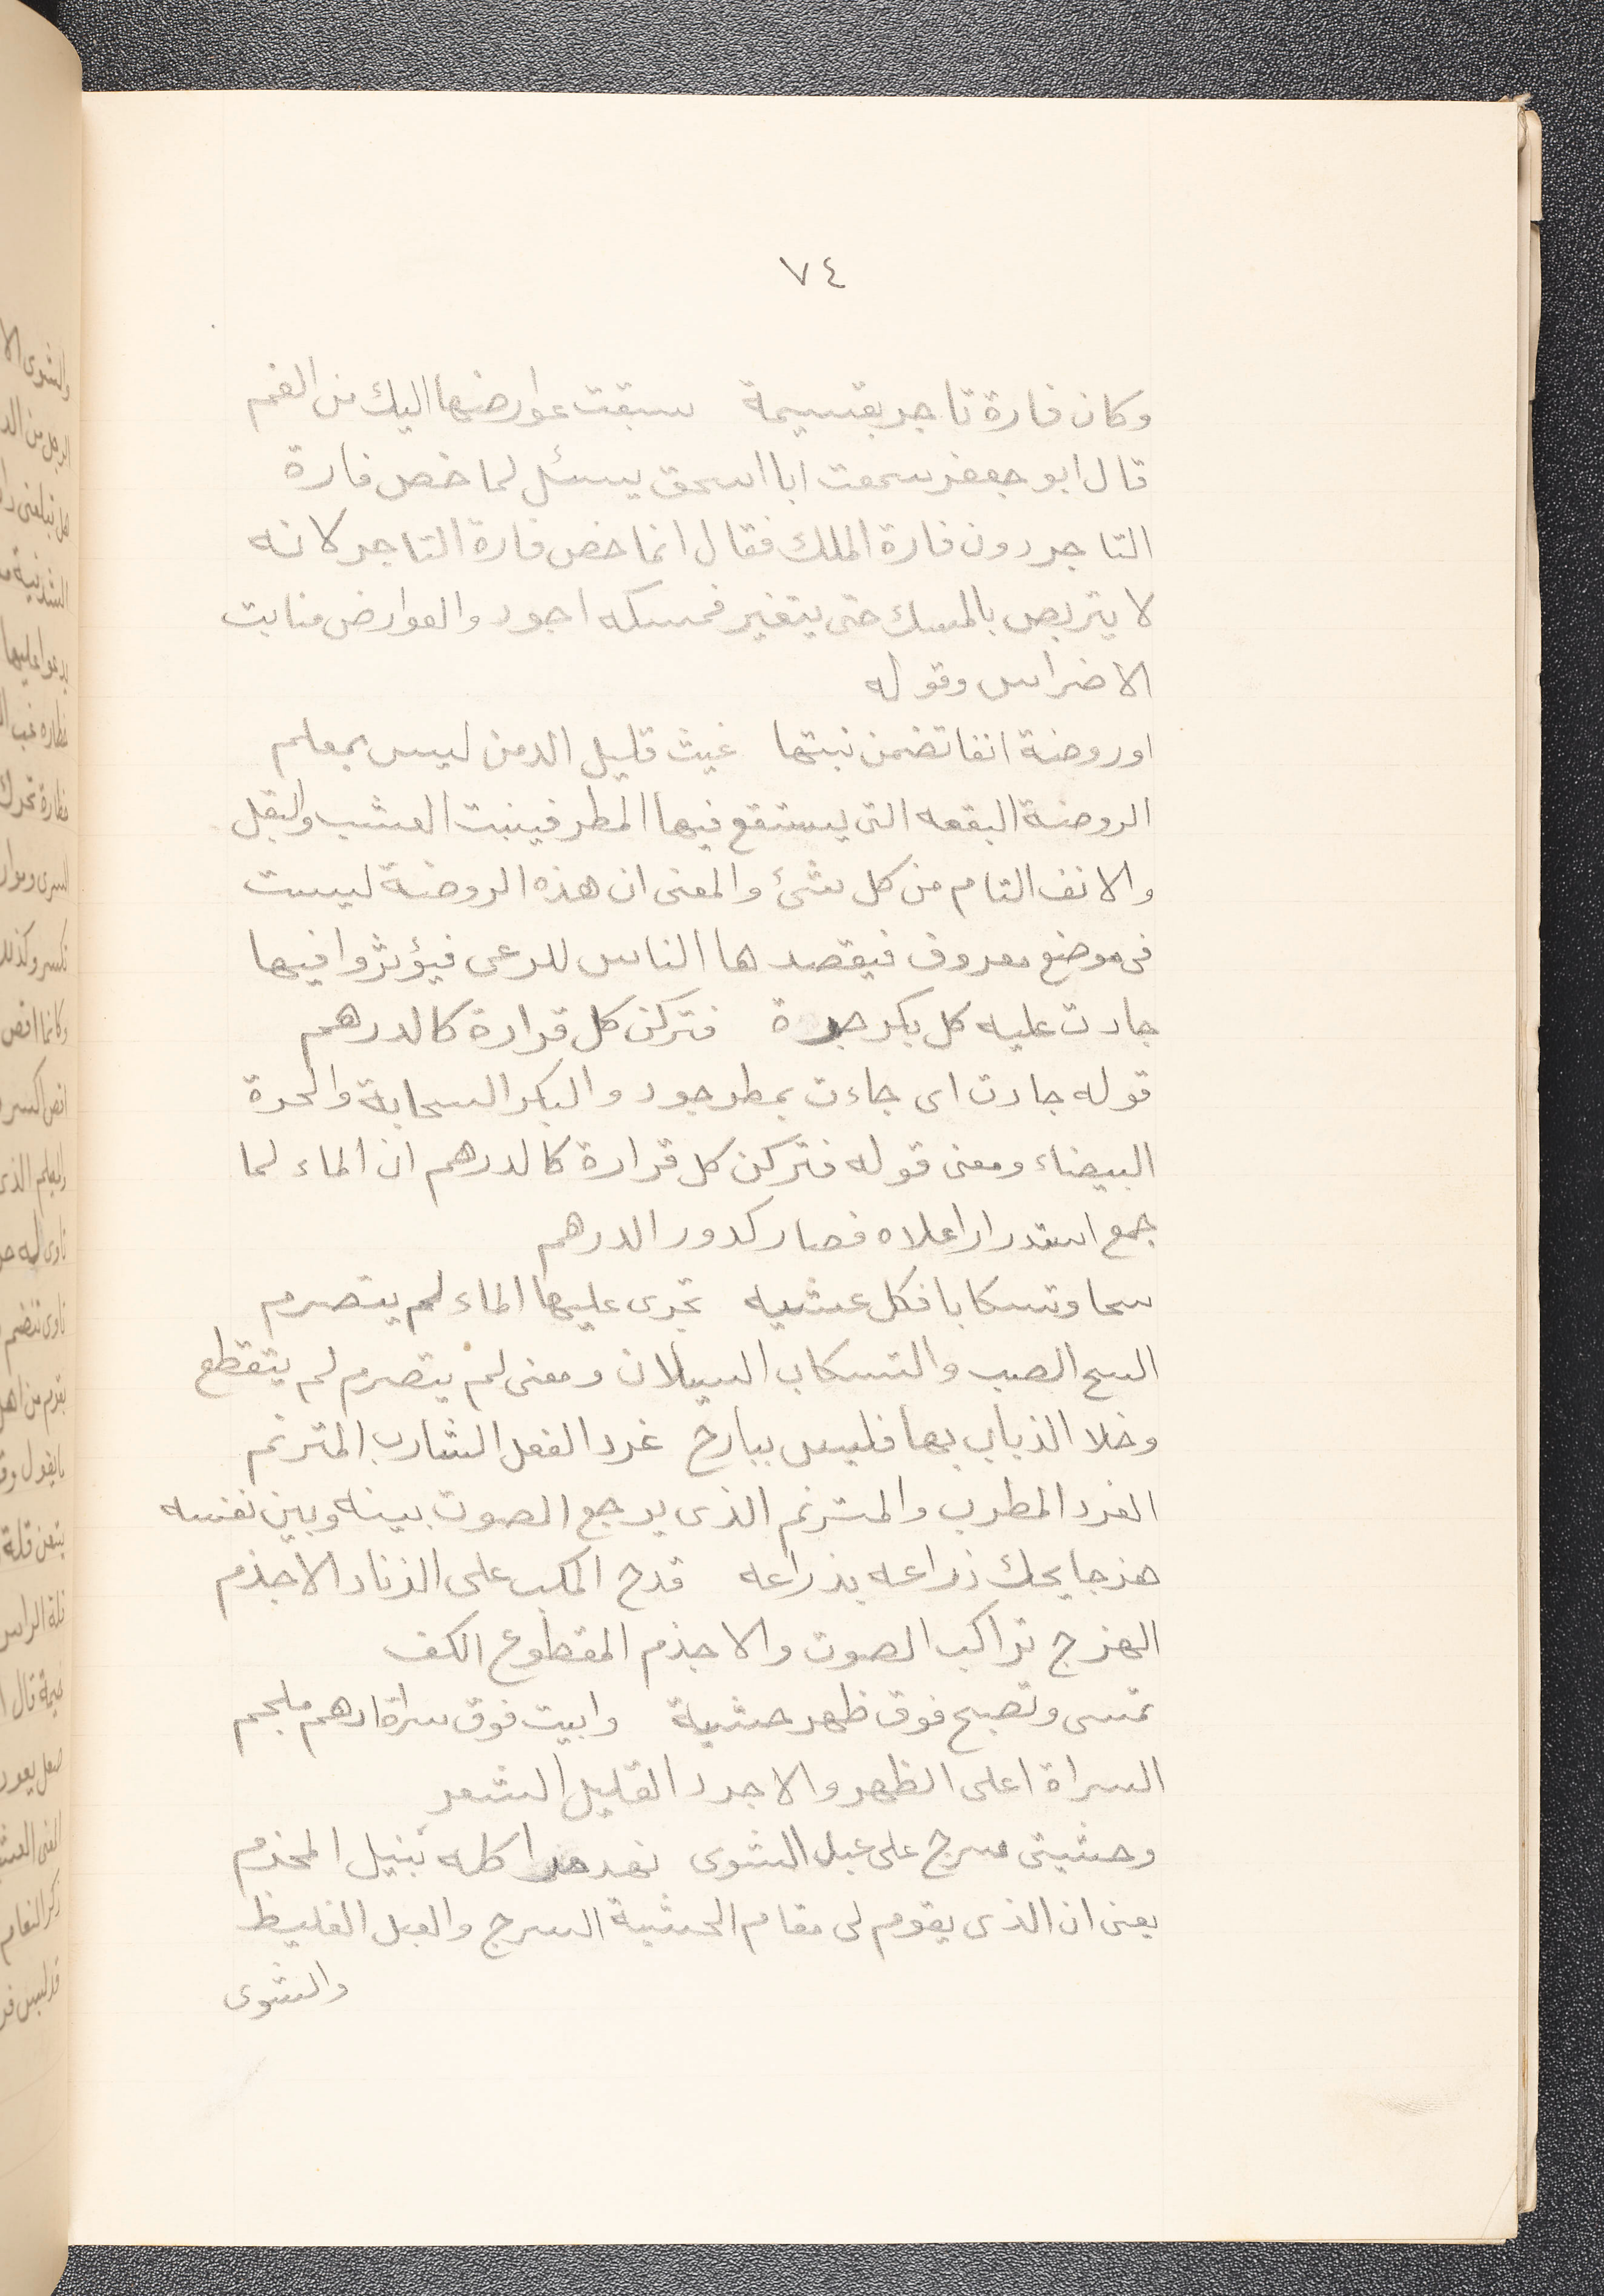 ٧٤
وكان فارة تاجر بقسيمة سبقت عوارضها اليك من الفم
قال ابو جعفر سمعت ابا اسحق يسئل لما خص فارة
التاجر دون فارة الملك فقال انما خص فارة التاجر لانه
لا يتربص بالمسك حتى يتغير فمسكه اجود والعوارض منابت
الاضراس وقوله
او روضة انفا تضمن نبتها غيث قليل الدمن ليس بمعلم
الروضة البقعه التى يستنقع فيها المطر فينبت العشب والبقل
والانف التام من كل شئ والمعنى ان هذه الروضة ليست
فى موضع معروف فيقصدها الناس للرعى فيؤثروا فيها
جادت عليه كل بكر حرة فتركن كل قرارة كالدرهم
قوله جادت اى جاءت بمطر جود والبكر السحابة والحرة
البيضاء ومعنى قوله فتركن كل قرارة كالدرهم ان الماء لما
جمع استدار اعلاه فصار كدور الدرهم
سحا وتسكابا فكل عشيه تجرى عليها الماء لم يتصرم
السح الصب والتسكاب السيلان ومعنى لم يتصرم لم يتقطع
وخلا الذباب بها فليس ببارح غرد الفعل الشارب المترنم
الغرد المطرب والمترنم الذى يرجع الصوت بينه وبين نفسه
هزجا يحك ذراعه بذراعه قدح المكب على الزناد الاجذم
الهزج تراكب الصوت والاجذم المقطوع الكف
تمسى وتصبح فوق ظهر حشية وابيت فوق سراة ادهم ملجم
السراة اعلى الظهر والاجرد القليل الشعر
وحشيتى سرج على عبل الشوى نهد مراكله نبيل المحزم
يعنى ان الذى يقوم لى مقام الحشية السرج والعبل الغليظ
والشوى